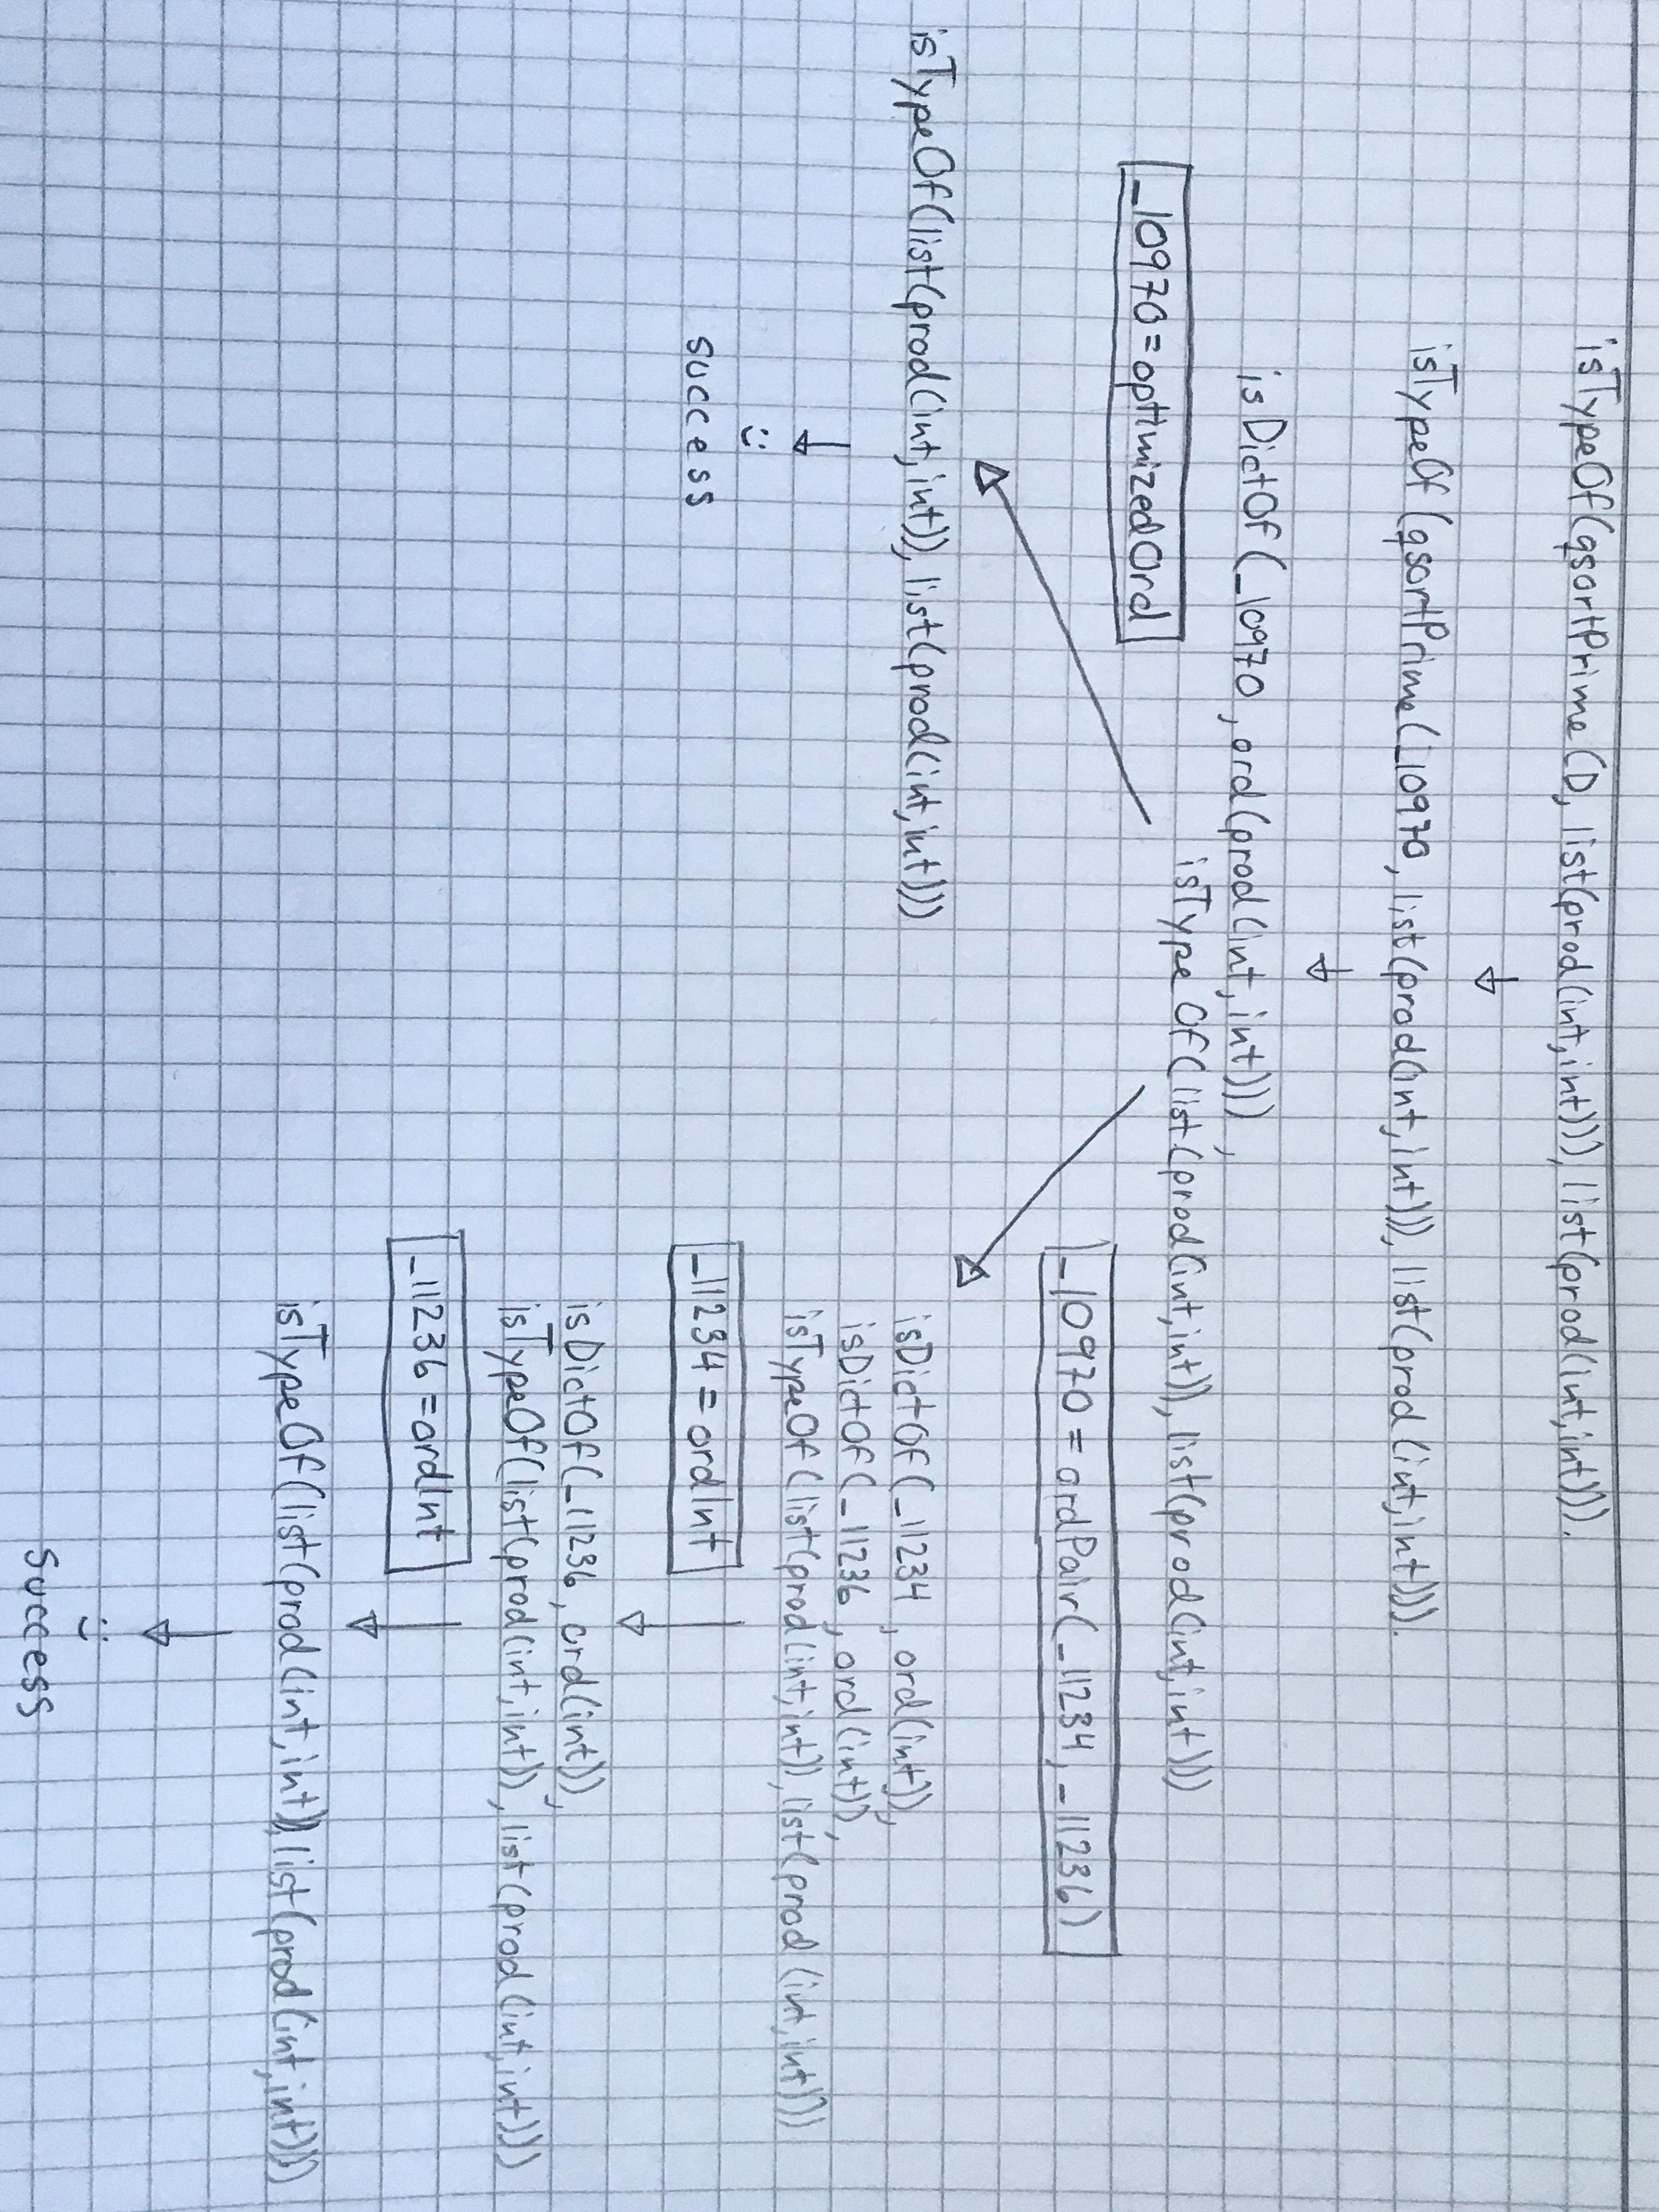 isTypeOf(qsortPrime(D, list(prod(int,int))), list(prod(int,int))).
isTypeOf(qsortPrime(_10970, list(prod(int,int))), list(prod(int,int))).
isDictOf(_10970, ord(prod(int,int))),
isTypeOf(list(prod(int,int)), list(prod(int,int)))
_10970 = optimizedOrd
_10970 = ordPair(_11234, _11236)
isTypeOf(list(prod(int,int)), list(prod(int,int)))
:)
success
isDictOf(_11234, ord(int)),
isDictOf(_11236, ord(int)),
isTypeOf(list(prod(int,int)), list(prod(int,int)))
_11234 = ordInt
isDictOf(_11236, ord(int)),
isTypeOf(list(prod(int,int)), list(prod(int,int)))
_11236 = ordInt
isTypeOf(list(prod(int,int)), list(prod(int,int)))
:)
success